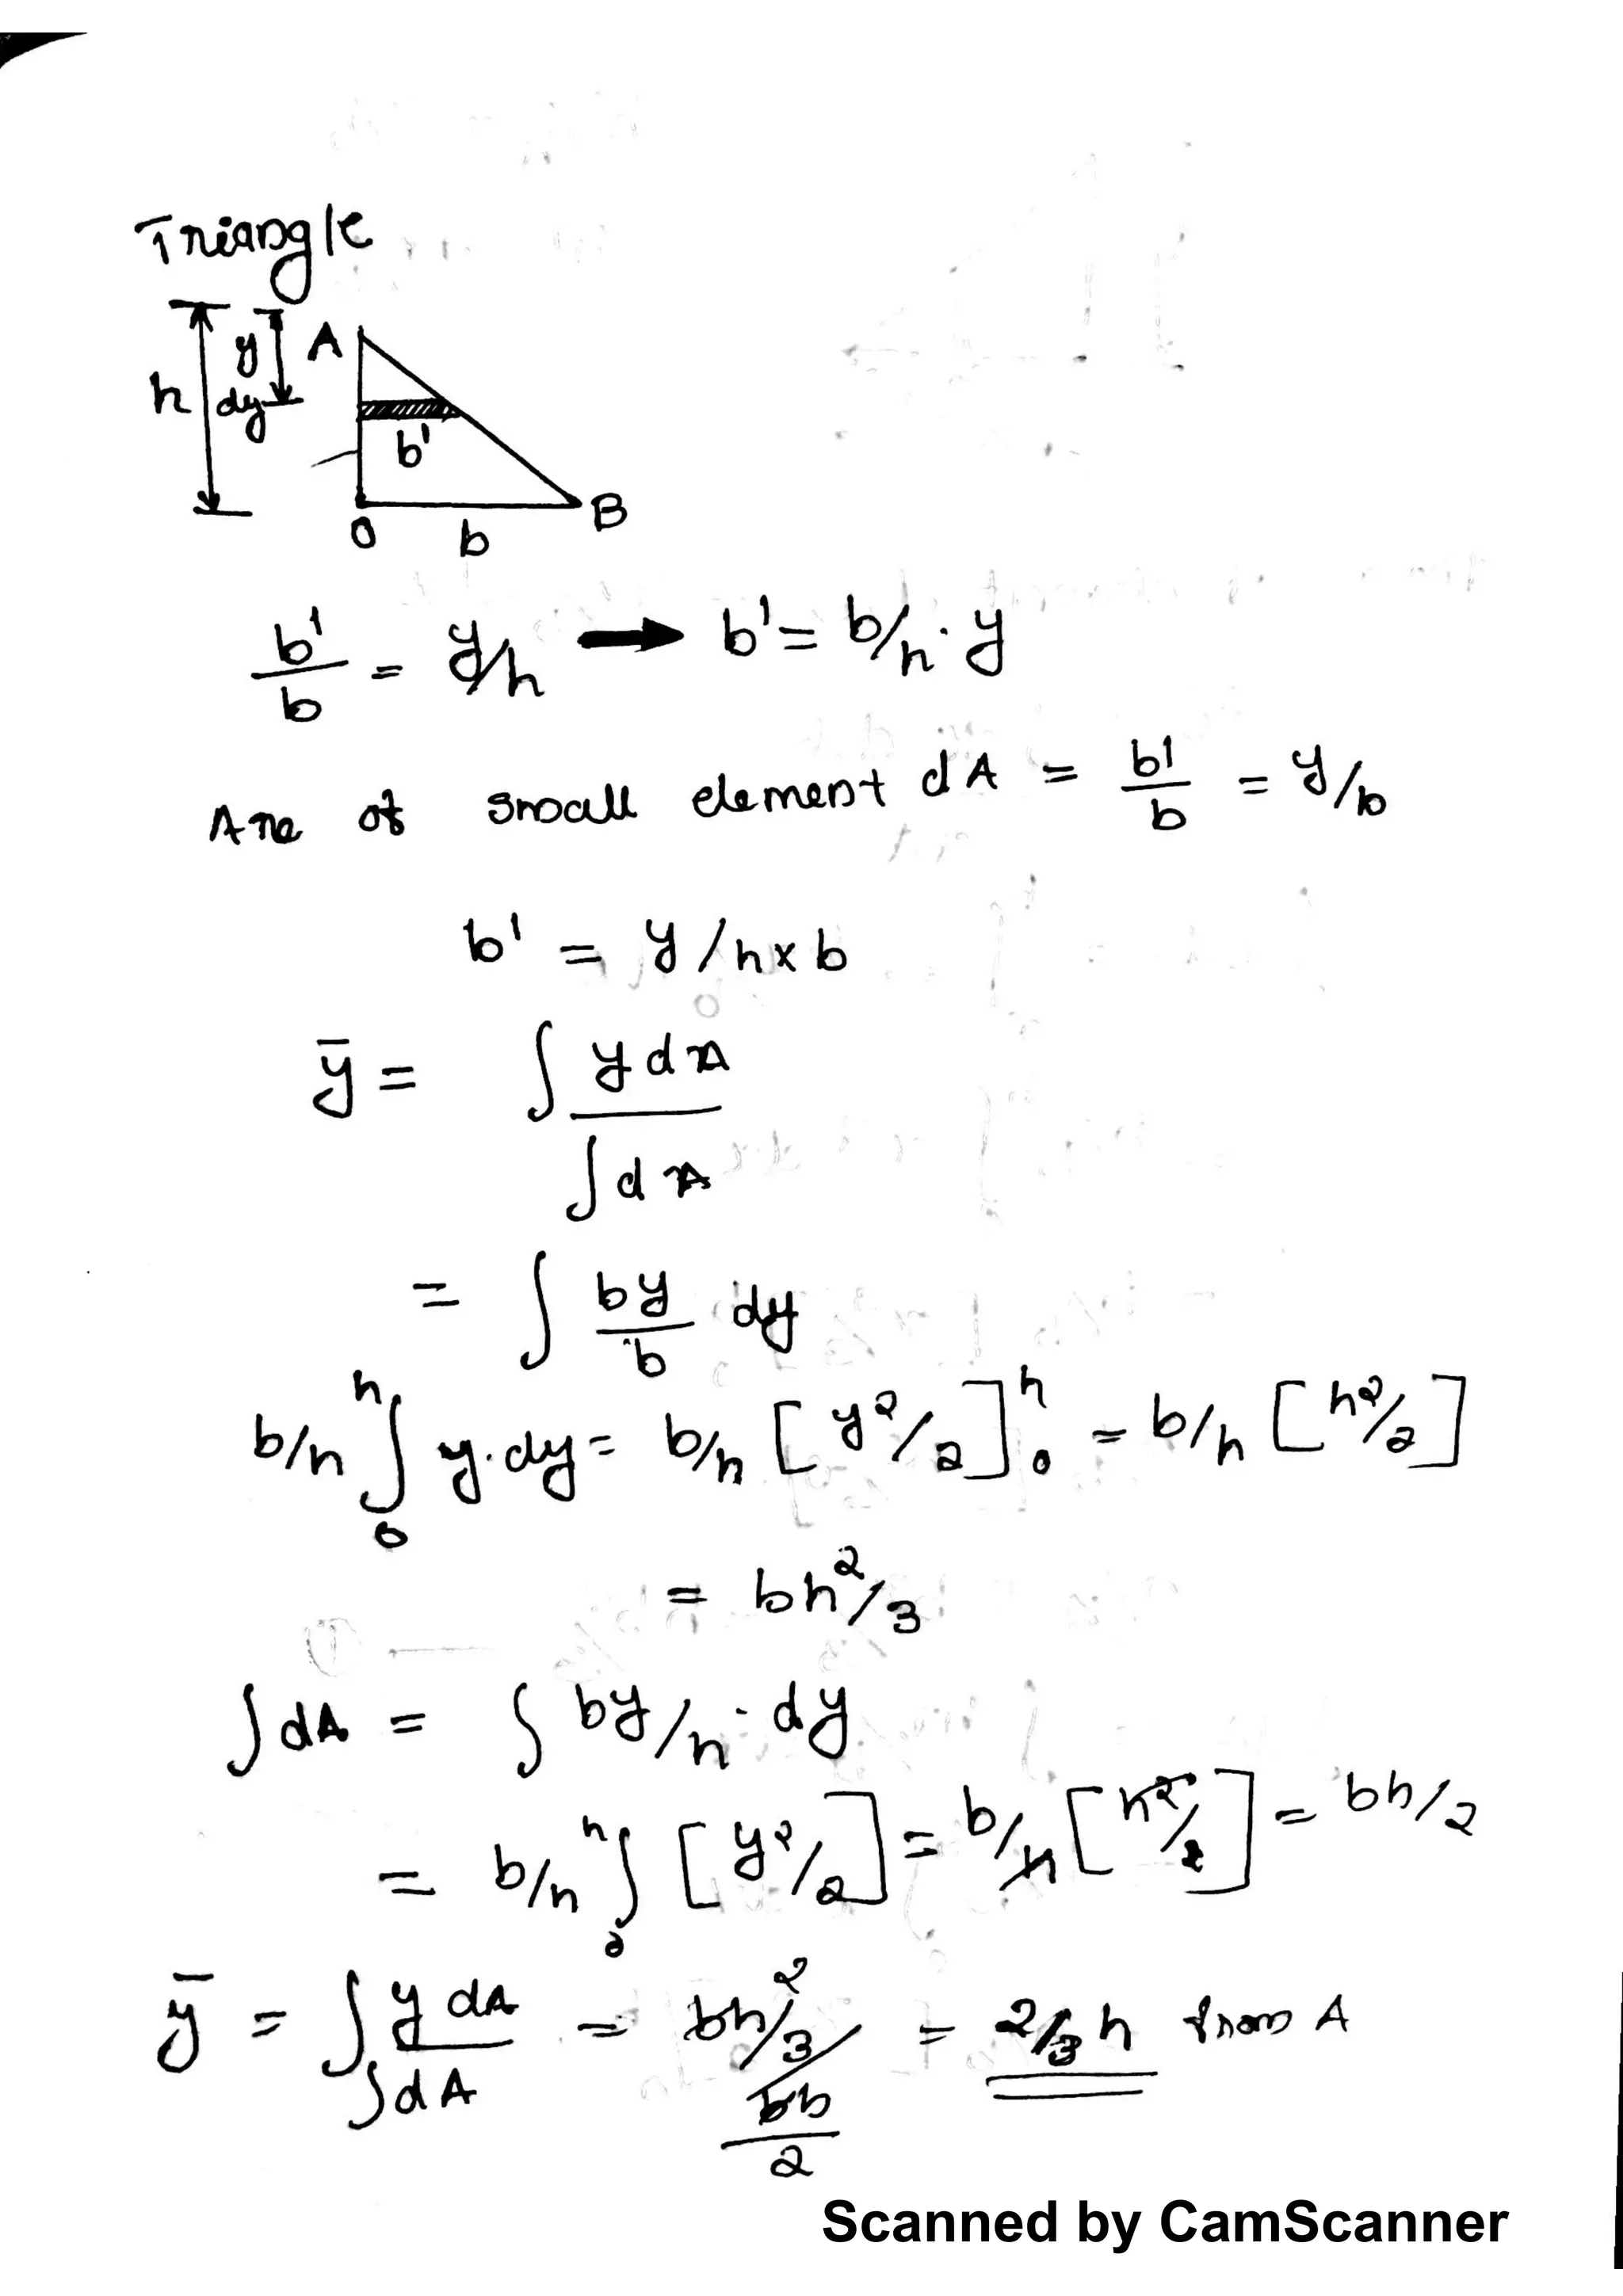 Triangle
h y dy A b'
O b B
b'/b = y/h → b' = b/h · y
Are of small element dA = b'/b = y/b
b' = y/h x b
ȳ = ∫ y dA / ∫ dA
= ∫ by/b dy
b/h ∫₀ʰ y. dy = b/h [y²/2]₀ʰ = b/h [h²/2]
= bh²/3
∫ dA = ∫ by/h · dy
= b/h ₀ʰ∫ [y²/2] = b/h [h²/2] = bh/2
ȳ = ∫ y dA / ∫ dA = bh²/3 / bh/2 = 2/3 h from A
Scanned by CamScanner